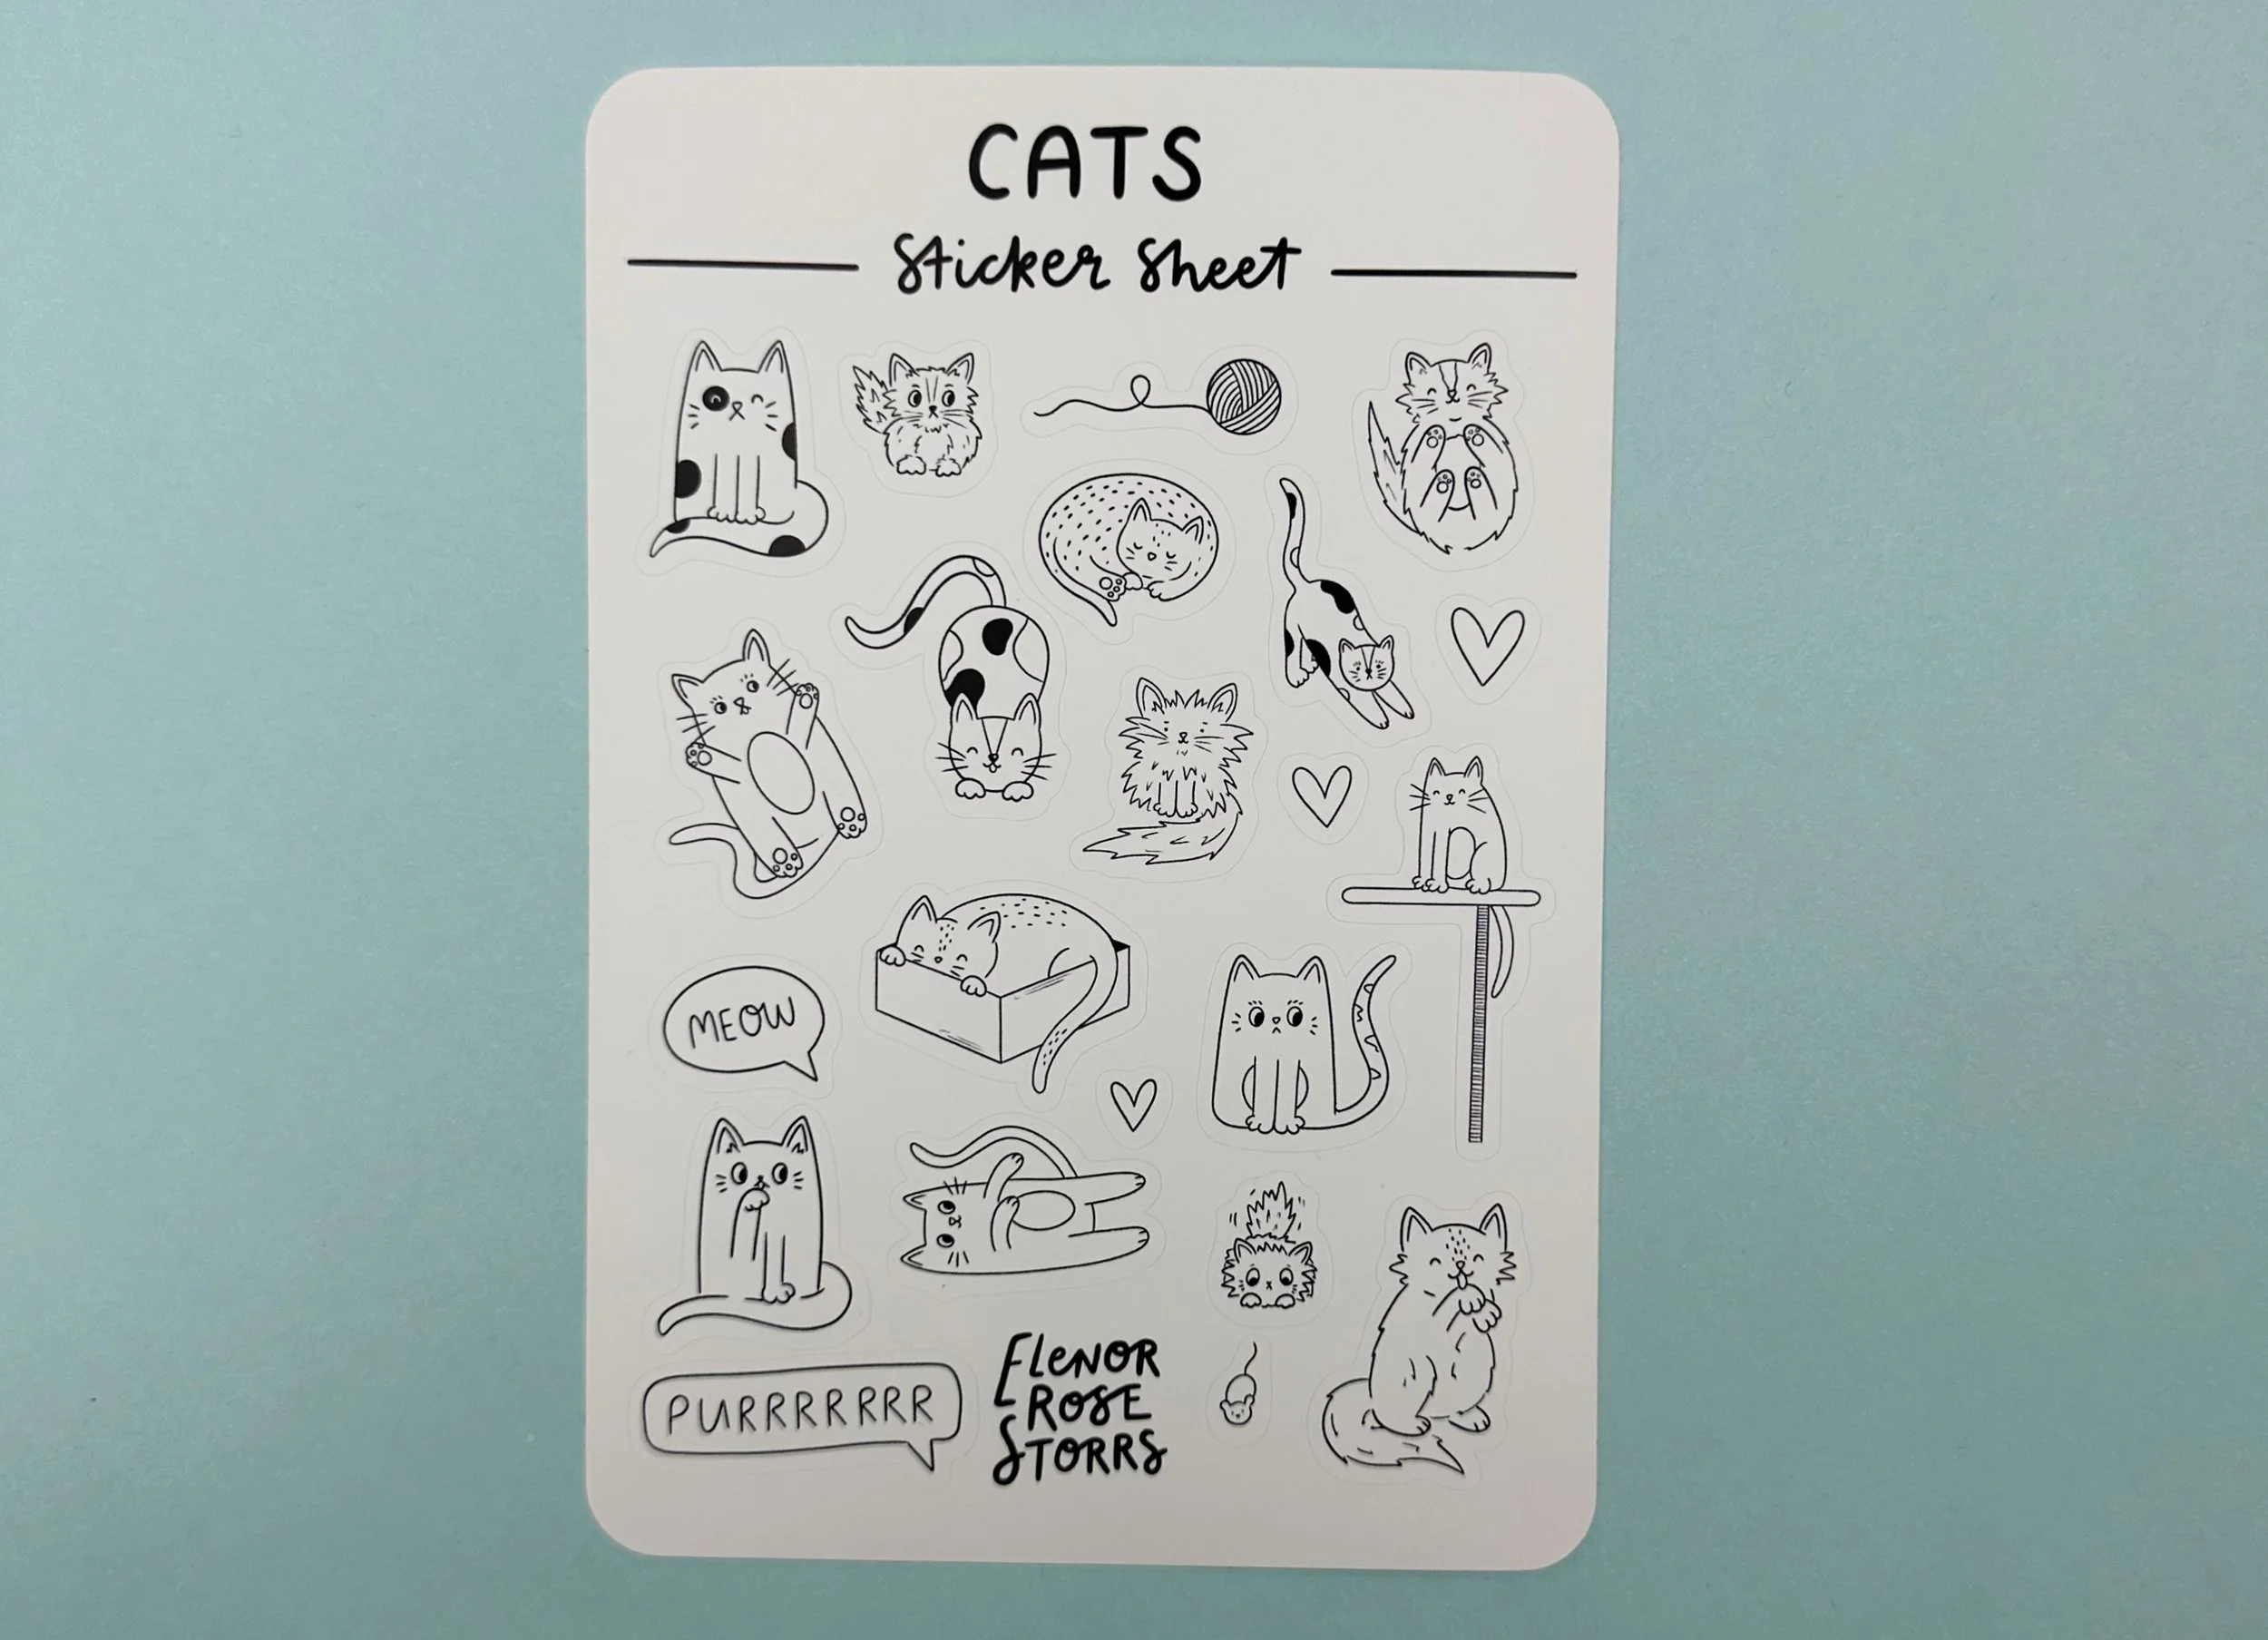 CATS
Sticker Sheet
MEOW
PURRRRRRR
ELENOR
ROSE
STORRS